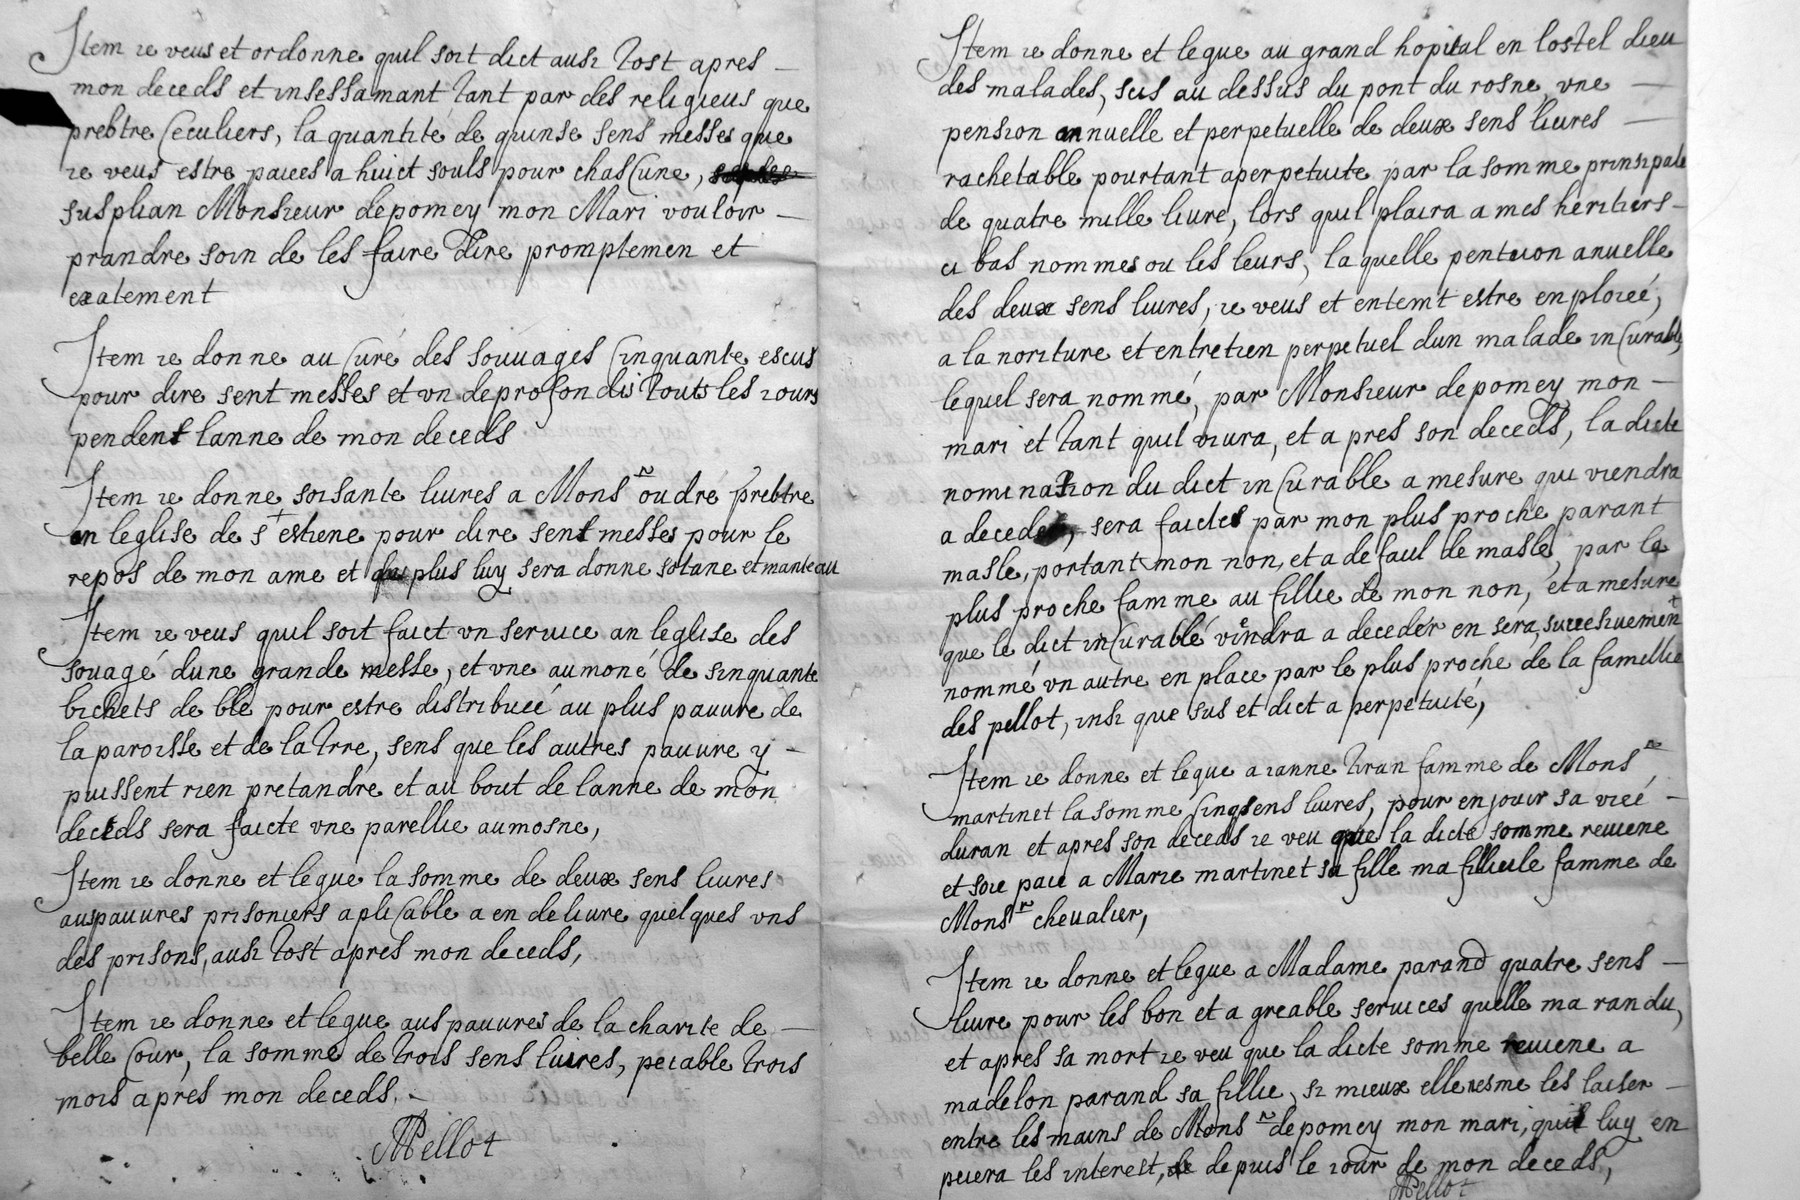 Item ie veus et ordonne quil soit dict ausi tost apres —
mon deceds et insessamant tant par des religieus que
prebtre seculiers, la quantité de quinse sens messes que
ie veus estre paiees a huict souls pour chascune,
susplian Monsieur depomey mon Mari vouloir —
prandre soin de les faire dire promptemen et
exatement
Item ie donne au curé des souuages cinquante escus
pour dire sent messes et vn deprofondis touts les iours
pendent lanne de mon deceds
Item ie donne soisante liures a Monsr oudré prebtre
en leglise de st estiene pour dire sent messes pour le
repos de mon ame et plus luy sera donne sotane et manteau
Item ie veus quil soit faict vn seruice an leglise des
souagé dune grande messe, et vne aumoné de sinquante
bichets de blé pour estre distribueé au plus pauure de
la paroisse et de la trre, sens que les autres pauure y —
puissent rien pretandre et au bout de lanne de mon
deceds sera faicte vne parellie aumosne,
Item ie donne et legue la somme de deux sens liures
auspauures prisoniers aplicable a en deliure quelques vns
des prisons, ausi tost apres mon deceds,
Item ie donne et legue auspauures de la charite de —
belle cour, la somme de trois sens luires, peiable trois
mois apres mon deceds. -
Pellot
Item ie donne et legue au grand hopital en lostel dieu
des malades, sus au dessus du pont du rosne, vne —
pension annuelle et perpetuelle de deux sens liures —
rachetable pourtant aperpetuite par la somme prinsipale
de quatre mille liure, lors quil plaira a mes heritiers —
ci bas nommes ou les leurs, la quelle pention anuelle
des deux sens liures, ie veus et entemt estre enploieé,
a la noriture et entretien perpetuel dun malade incurable,
lequel sera nommé, par Monsieur depomey mon —
mari et tant quil viura, et a pres son deceds, la dicte
nomination du dict incurable a mesure qui viendra
a deceder, sera faictes par mon plus proche parant
masle, portant mon non, et a defaul de masle, par la
plus proche famme au fillie de mon non, et a mesure
que le dict incurablé viendra a deceder en sera, sucesiuement
nommé vn autre en place par le plus proche de la famellie
des pellot, insi que sus et dict a perpetuité,
Item ie donne et legue a ianne tiran famme de Monsr
martinet la somme cinqsens liures, pour en jouir sa vieé —
duran et apres son deceds ie veu que la dicte somme reuiene
et soie paie a Marie martinet sa fille ma fillieule famme de
Monsr cheualier,
Item ie donne et legue a Madame parand quatre sens —
liure pour les bon et agreable seruices quelle ma randu,
et apres sa mort ie veu que la dicte somme reuiene a
madelon parand sa fillie, si mieux elle nesme les laiser —
entre les mains de Monsr depomey mon mari, quil luy en
peiera les interest, de depuis le iour de mon deceds,
Pellot